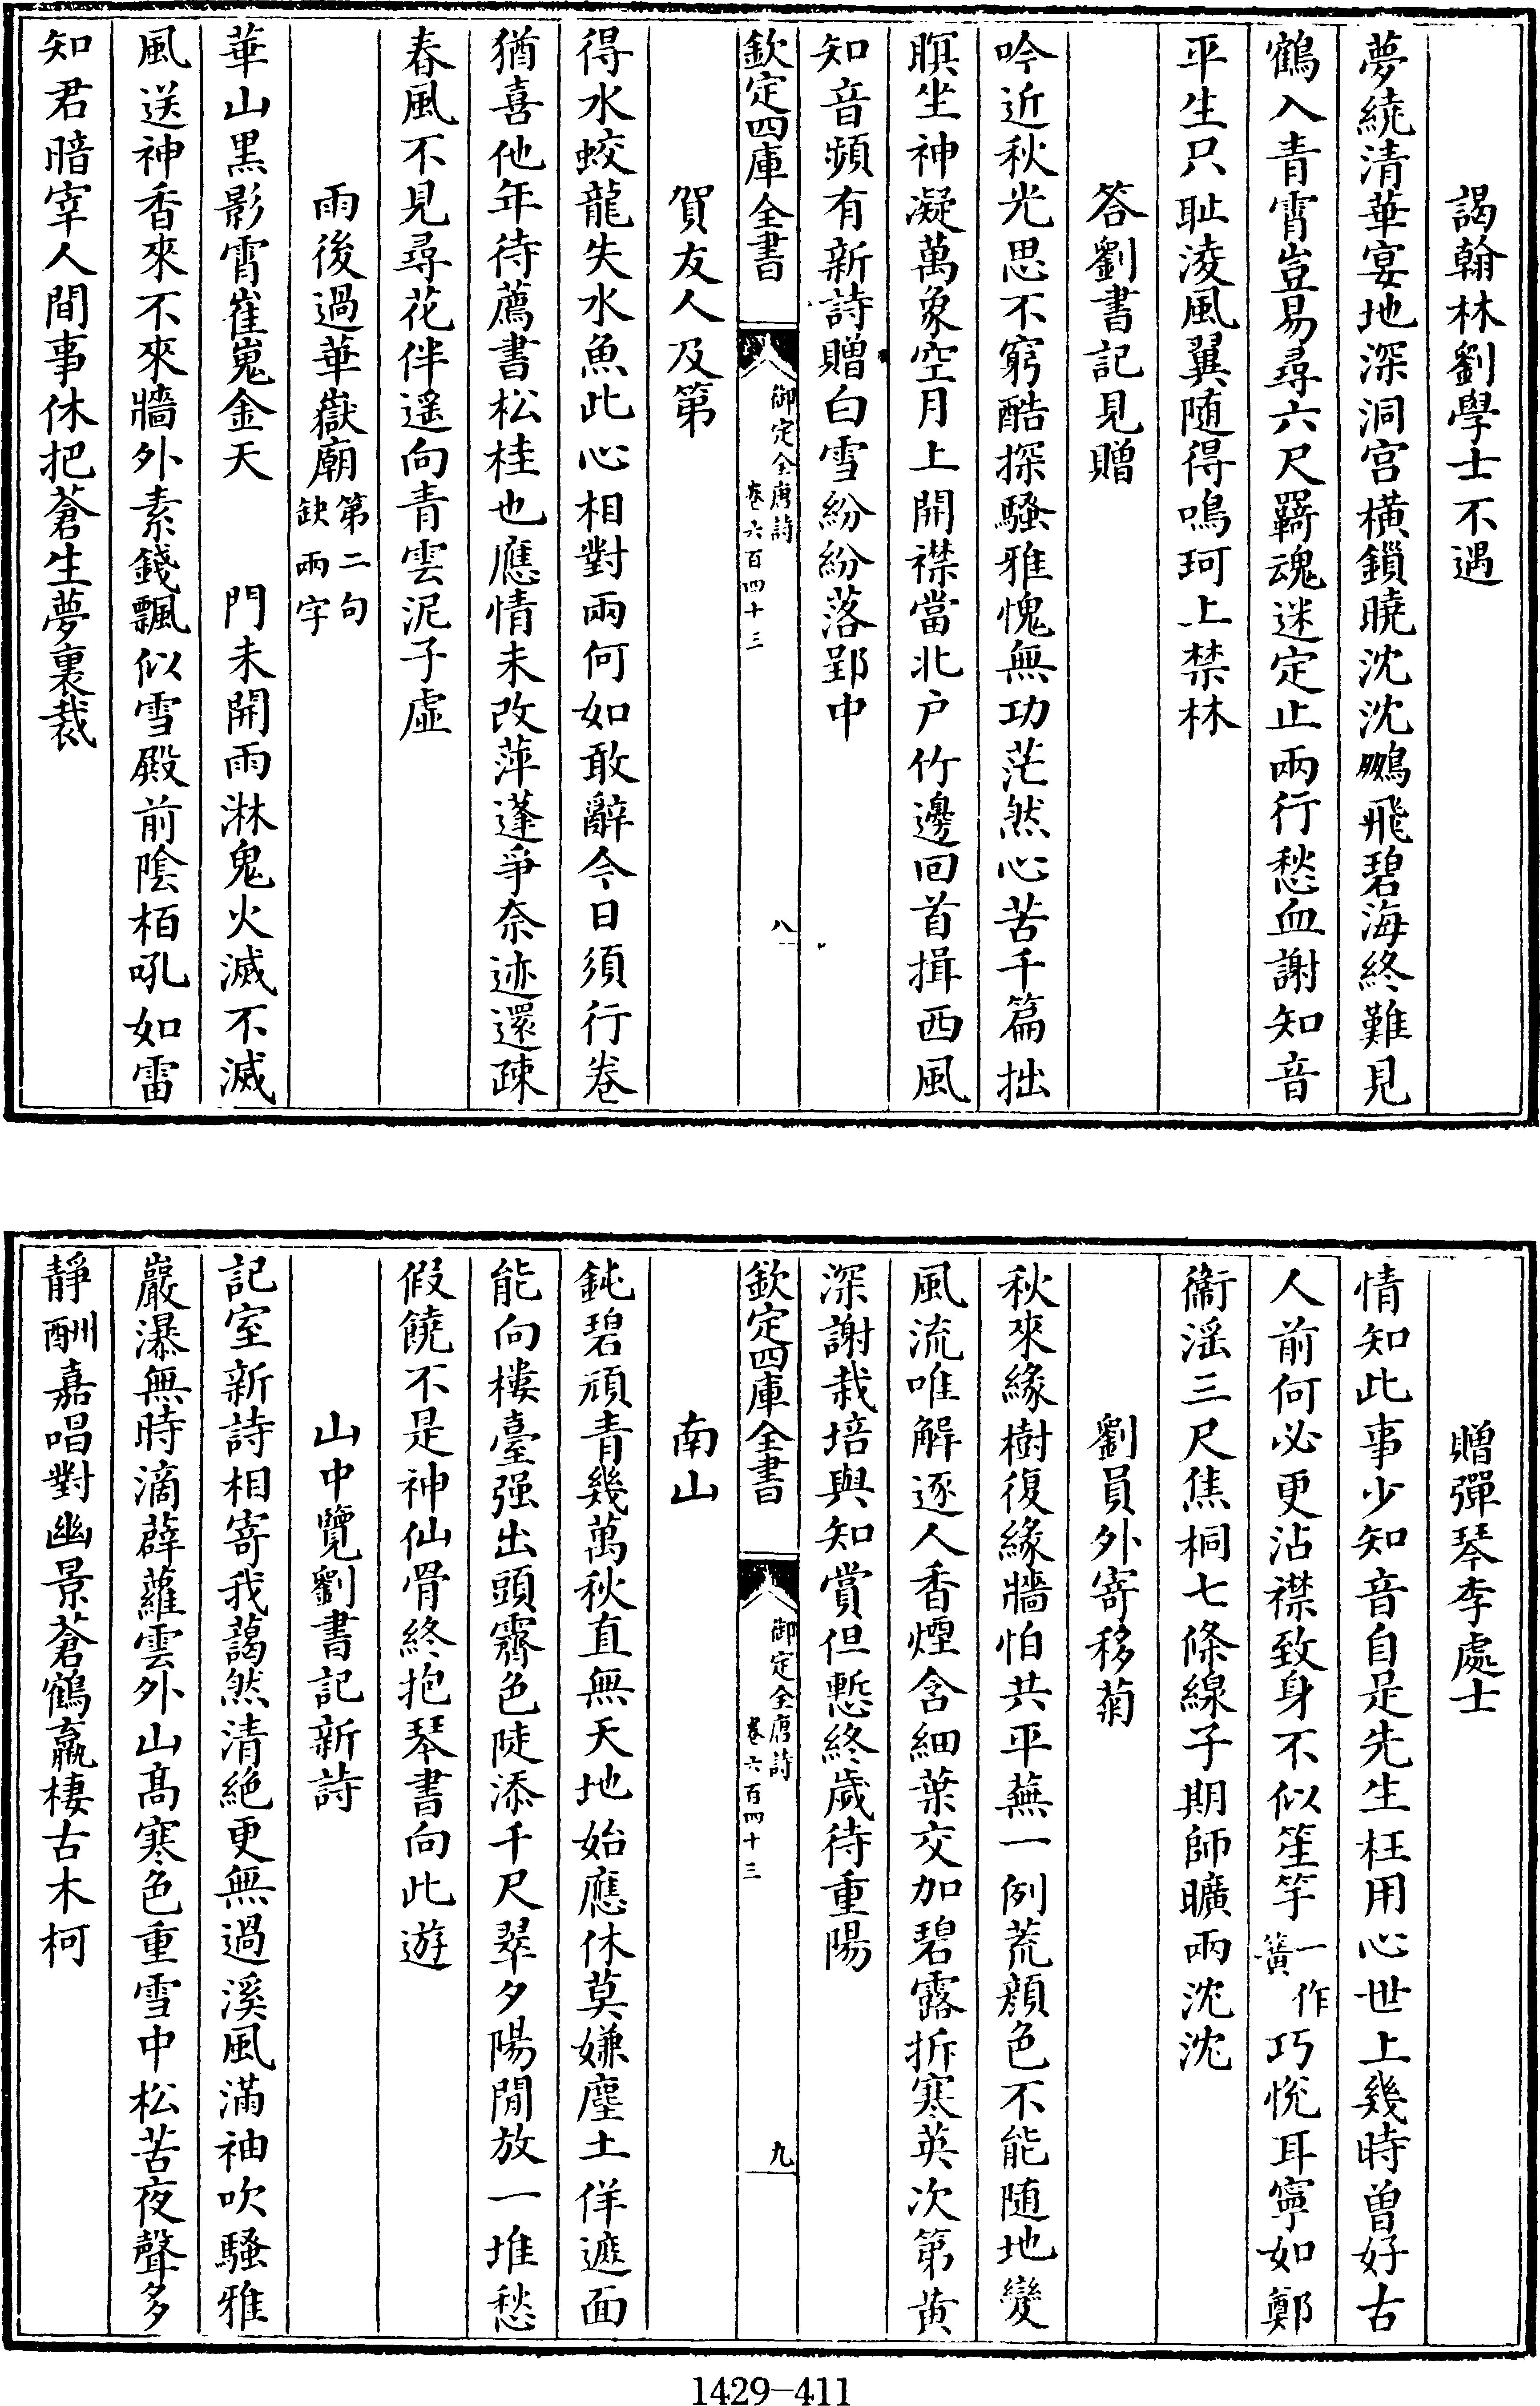 謁翰林劉學士不遇
夢繞清華宴地深洞宫橫鎖曉沈沈鵬飛碧海終難見
鶴入青霄豈易尋六尺羇魂迷定止兩行愁血謝知音
平生只耻淩風翼随得鳴珂上禁林
答劉書記見贈
吟近秋光思不窮酷探騷雅愧無功茫然心苦千篇拙
瞑坐神凝萬象空月上開襟當北户竹邊回首揖西風
知音頻有新詩贈白雪紛紛落郢中
欽定四庫全書
御定全唐詩
卷六百四十三
八
賀友人及第
得水蛟龍失水魚此心相對兩何如敢辭今日須行卷
猶喜他年待薦書松桂也應情未改萍蓬爭奈迹還疎
春風不見尋花伴遥向青雲泥子虛
雨後過華嶽廟第二句缺兩字
華山黒影霄崔嵬金天 門未開雨淋鬼火滅不滅
風送神香來不來牆外素錢飄似雪殿前陰栢吼如雷
知君暗宰人間事休把蒼生夢裏裁
贈彈琴李處士
情知此事少知音自是先生枉用心世上幾時曾好古
人前何必更沾襟致身不似笙竽一作簧巧悅耳寧如鄭
衞淫三尺焦桐七條線子期師曠兩沈沈
劉員外寄移菊
秋來緣樹復緣牆怕共平蕪一例荒顔色不能随地變
風流唯解逐人香煙含細葉交加碧露拆寒英次第黄
深謝栽培與知賞但慙終歲待重陽
欽定四庫全書
御定全唐詩
卷六百四十三
九
南山
鈍碧頑青幾萬秋直無天地始應休莫嫌塵土佯遮面
能向樓臺强出頭霽色陡添千尺翠夕陽閒放一堆愁
假饒不是神仙骨終抱琴書向此遊
山中覽劉書記新詩
記室新詩相寄我藹然清絶更無過溪風滿袖吹騷雅
巖瀑無時滴薜蘿雲外山髙寒色重雪中松苦夜聲多
靜酬嘉唱對幽景蒼鶴羸棲古木柯
1429-411